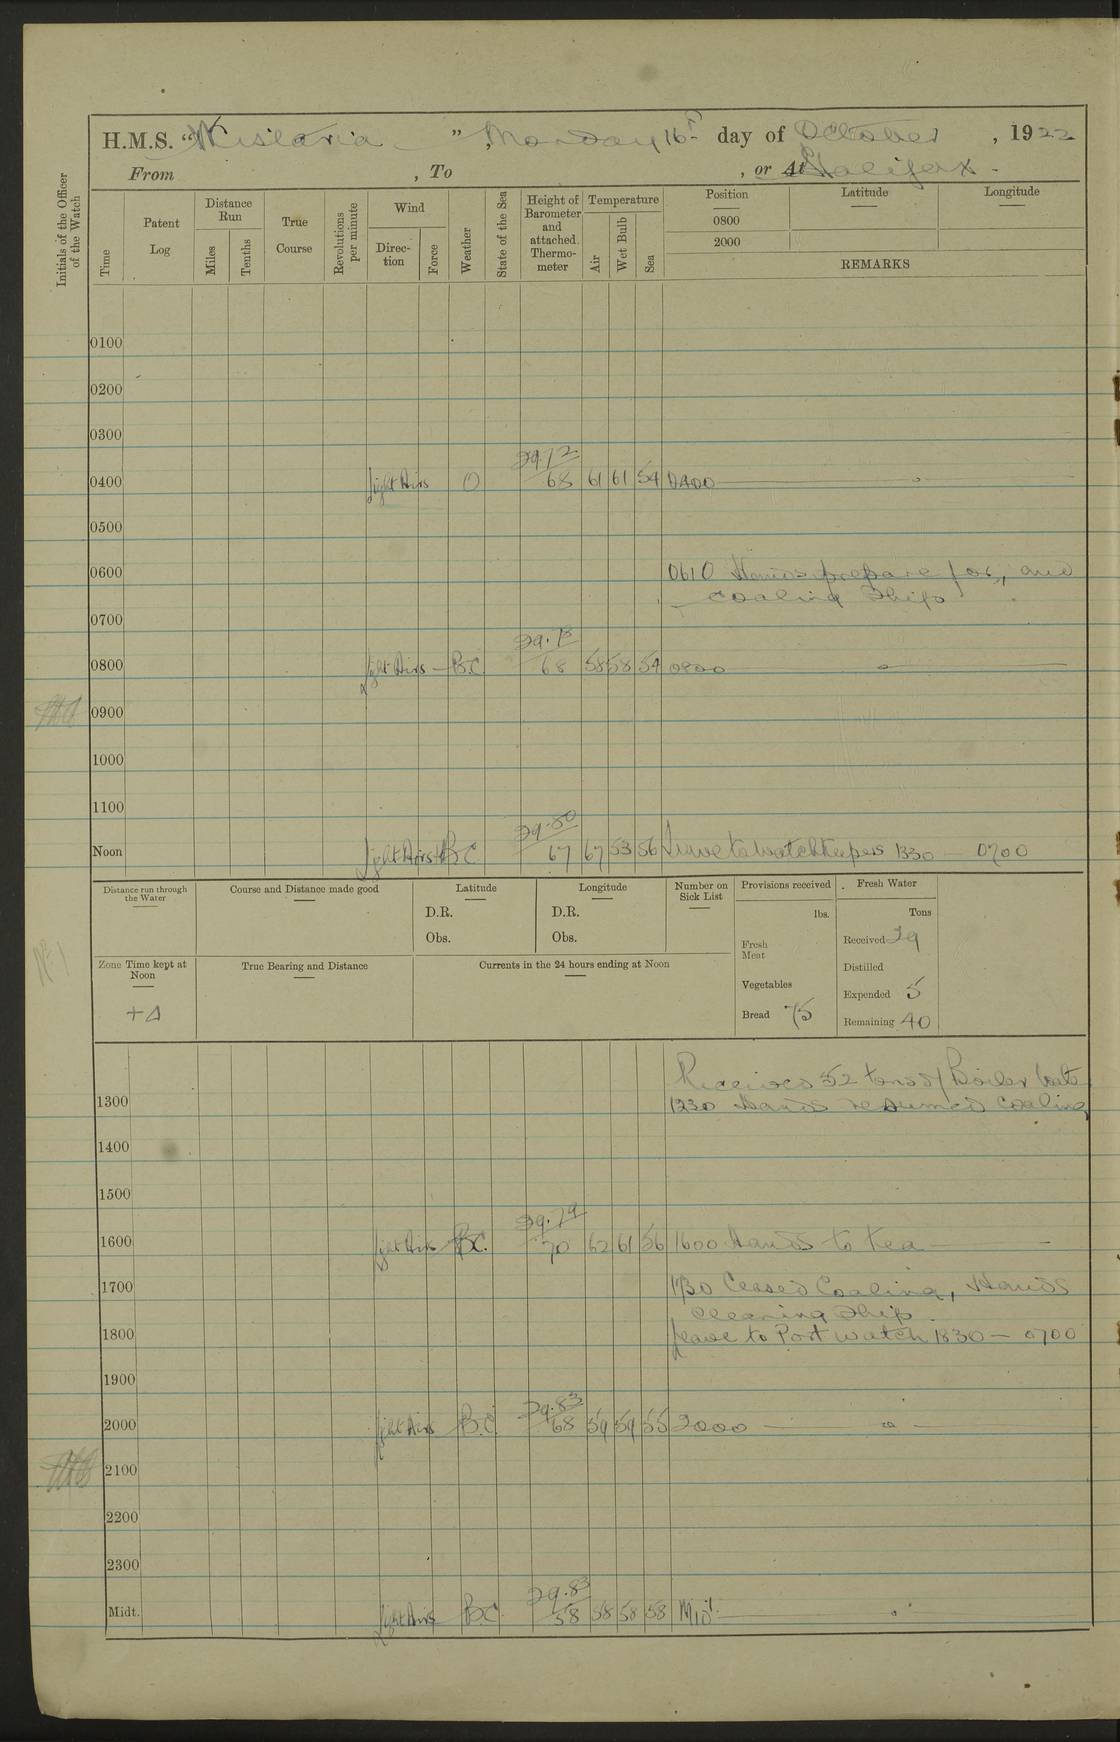 H.M.S. "Wistaria", Monday 16th day of October, 1922
From , To , or At Halifax.
Initials of the Officer of the Watch
Time
Patent Log
Distance Run
Miles
Tenths
True Course
Revolutions per minute
Wind
Direction
Force
Weather
State of the Sea
Height of Barometer and attached Thermometer
Temperature
Air
Wet Bulb
Sea
Position
Latitude
Longitude
0800
2000
REMARKS
0100
0200
0300
29.72
0400 Light Airs O 68 61 61 54 0400
0500
0600 0610 Hands prepare for, and
coaling Ship
0700
29.78
0800 Light Airs BC 68 58 58 54 0800
0900
1000
1100
29.80
Noon Light Airs BC 67 67 53 56 Leave to watchkeepers 1330 — 0700
Distance run through the Water
Course and Distance made good
Latitude
D.R.
Obs.
Longitude
D.R.
Obs.
Number on Sick List
Provisions received
lbs.
Fresh Meat
Vegetables
Bread 75
Fresh Water
Tons
Received 29
Distilled
Expended 5
Remaining 40
Zone Time kept at Noon
+4
True Bearing and Distance
Currents in the 24 hours ending at Noon
Received 52 tons of Boiler
1300 1230 Hands resumed coaling
1400
1500
29.79
1600 Light Airs BC. 70 62 61 56 1600 Hands to tea
1700 1730 Ceased Coaling, Hands
cleaning Ship.
1800 Leave to Port watch 1830 — 0700
1900
29.83
2000 Light Airs B.C. 68 59 59 55 2000
2100
2200
2300
29.83
Midt. Light Airs BC. 58 58 58 58 Midt.